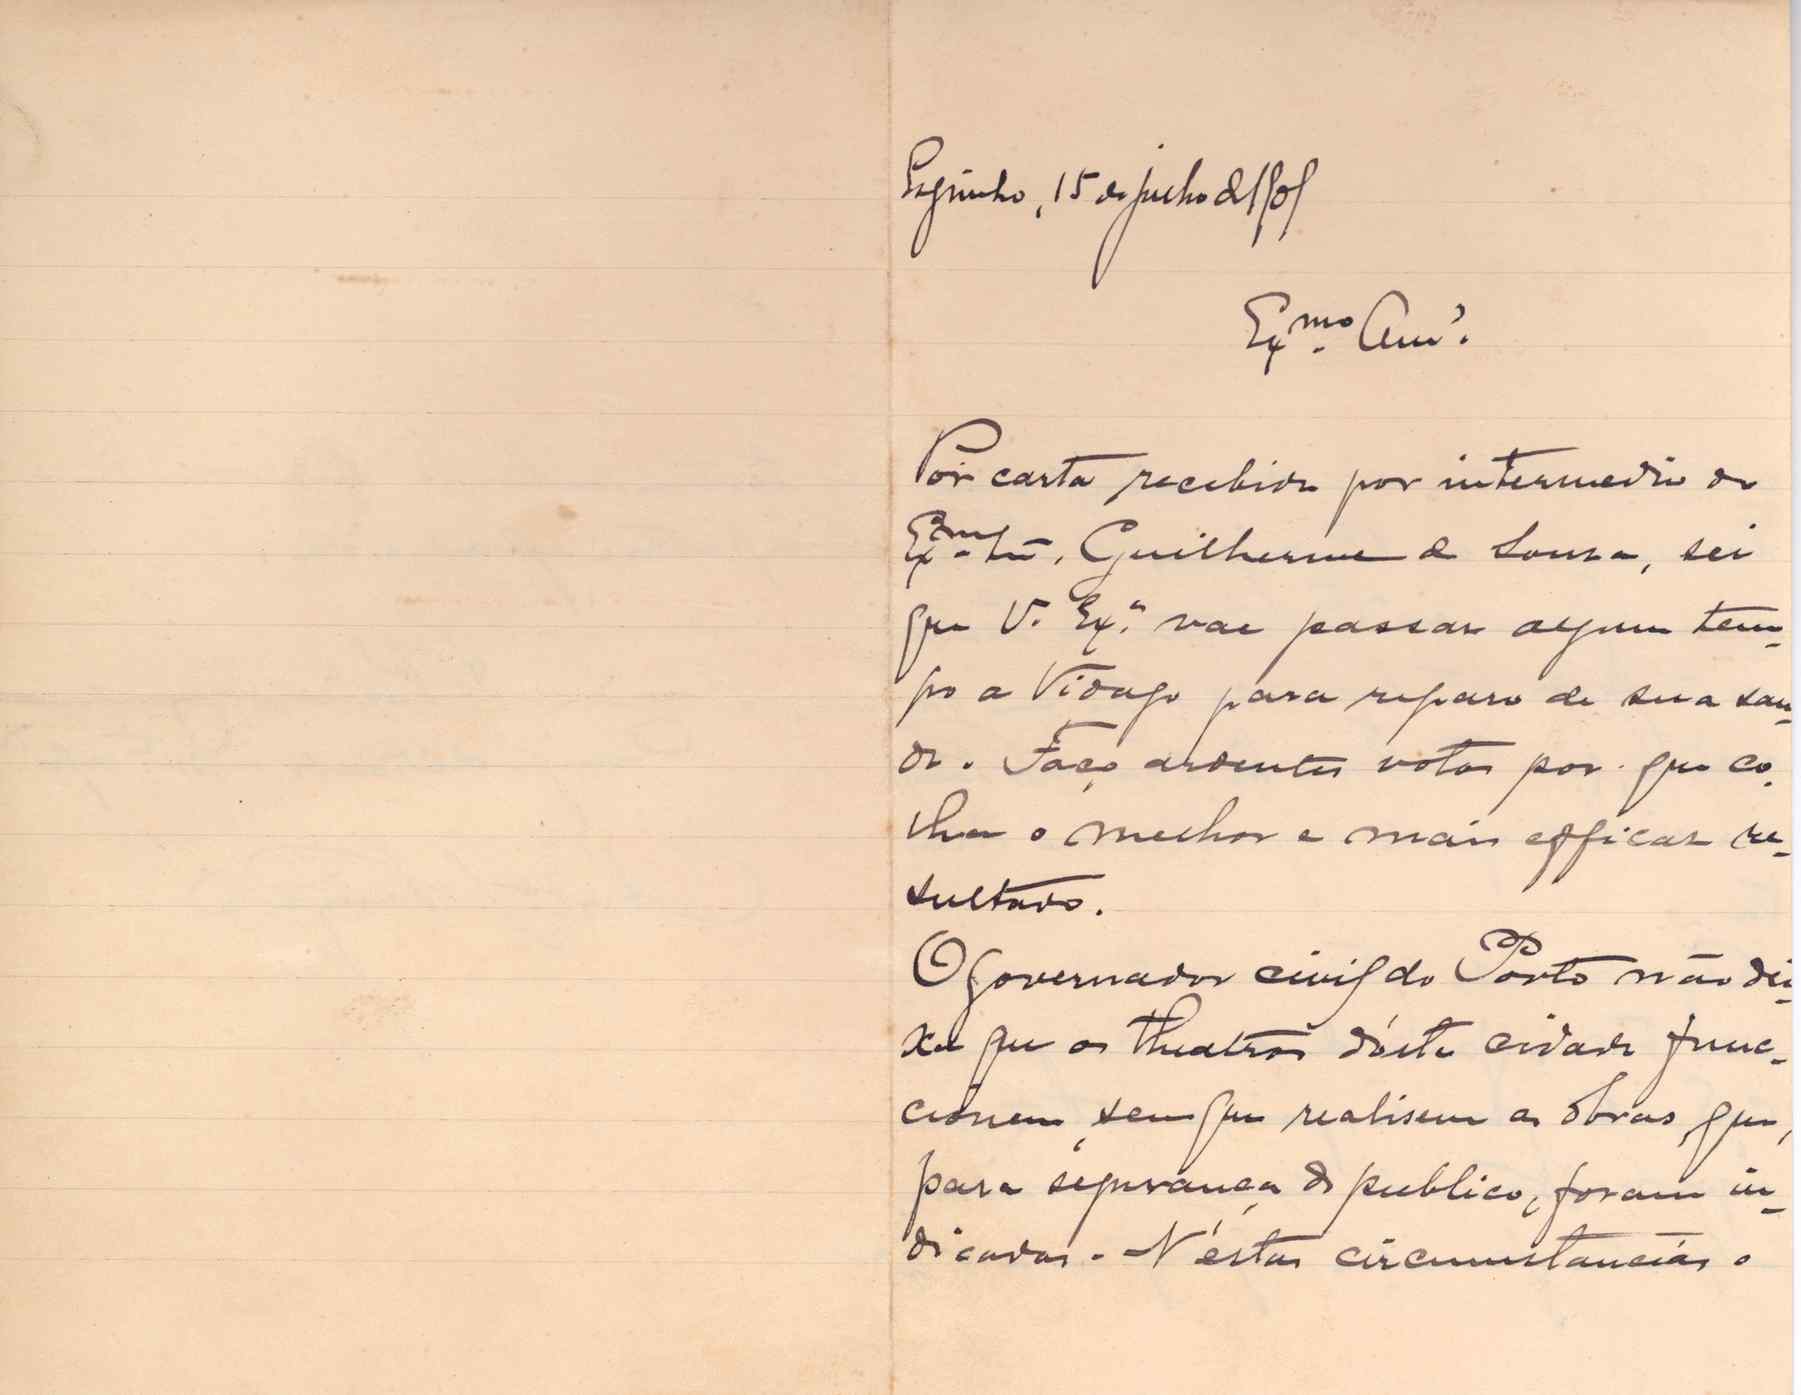 Espinho, 15 de julho de 1909
Ex.mo Am.º
Por carta recebida por intermedio do
Ex.mo Snr. Guilherme de Souza, sei
que V. Ex.ª vae passar algum tem-
po a Vidago para reparo de sua sau-
de. Faço ardentes votos por que co-
lha o melhor e mais efficaz re-
sultado.
O governador civil do Porto não dei-
xa que os theatros d'esta cidade func-
cionem, sem que realisem as obras, que,
para segurança do publico, foram in-
dicadas. N'estas circumstancias o